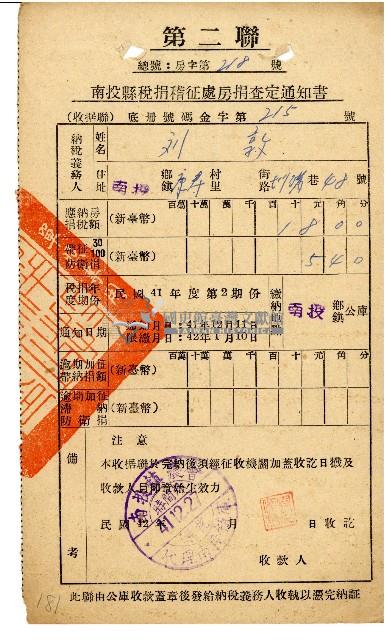 第二聯
總號：房字第218號
南投縣稅捐稽征處房捐查定通知書
(收据聯) 底册號碼金字第215號
納稅義務人 姓名 刘敦
住址 南投 鄉鎮 村里 街路 巷48號
百萬 十萬 萬 千 百 十 元 角 分
應納房捐稅額 (新臺幣) 1800
帶征30/100防衛捐 (新臺幣) 540
稅捐年度期份 民國41年度第2期份 繳納地點 南投 鄉鎮 公庫
通知日期 通知月日：41年12月11日
限繳月日：42年1月10日
百萬 十萬 萬 千 百 十 元 角 分
逾期加征滯納捐額 (新臺幣)
逾期加征滯納防衛捐 (新臺幣)
備考
注意
本收据聯於完納後須經征收機關加蓋收訖日戳及
收款人員節章始生效力
民國42年 月 日收訖
收款人
此聯由公庫收款蓋章後發給納稅義務人收執以憑完納証
181